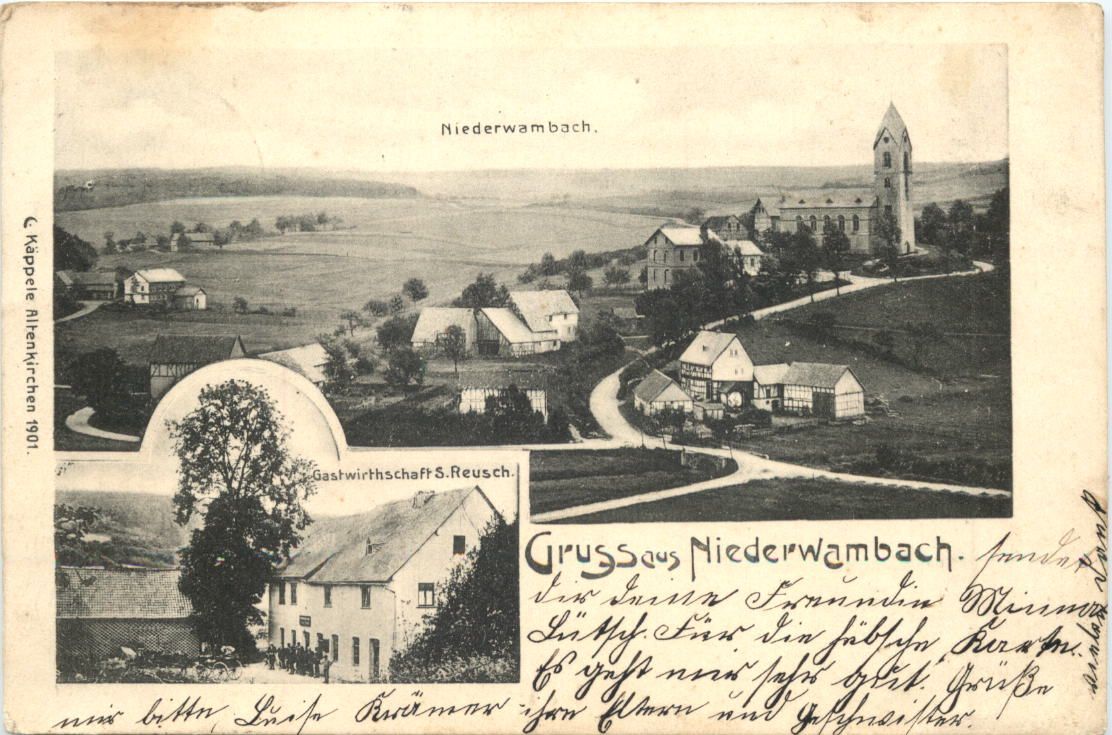 Niederwambach.
Käppele Altenkirchen 1901.
Gastwirthschaft S. Reusch.
Gruss aus Niederwambach.
sendet
dir deine Freundin Minna
Lütsch. Für die hübsche Karte.
Es geht mir sehr gut. Grüße
mir bitte, Luise Krämer ihre Eltern und Geschwister.